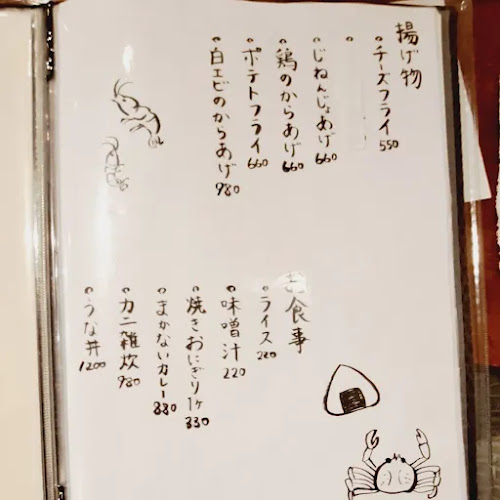 揚げ物
チーズフライ 550
じねんじょあげ 660
鶏のからあげ 660
ポテトフライ 660
白エビのからあげ 980
お食事
ライス 220
味噌汁 220
焼きおにぎり1ケ 330
まかないカレー 880
カニ雑炊 980
うな丼 1200